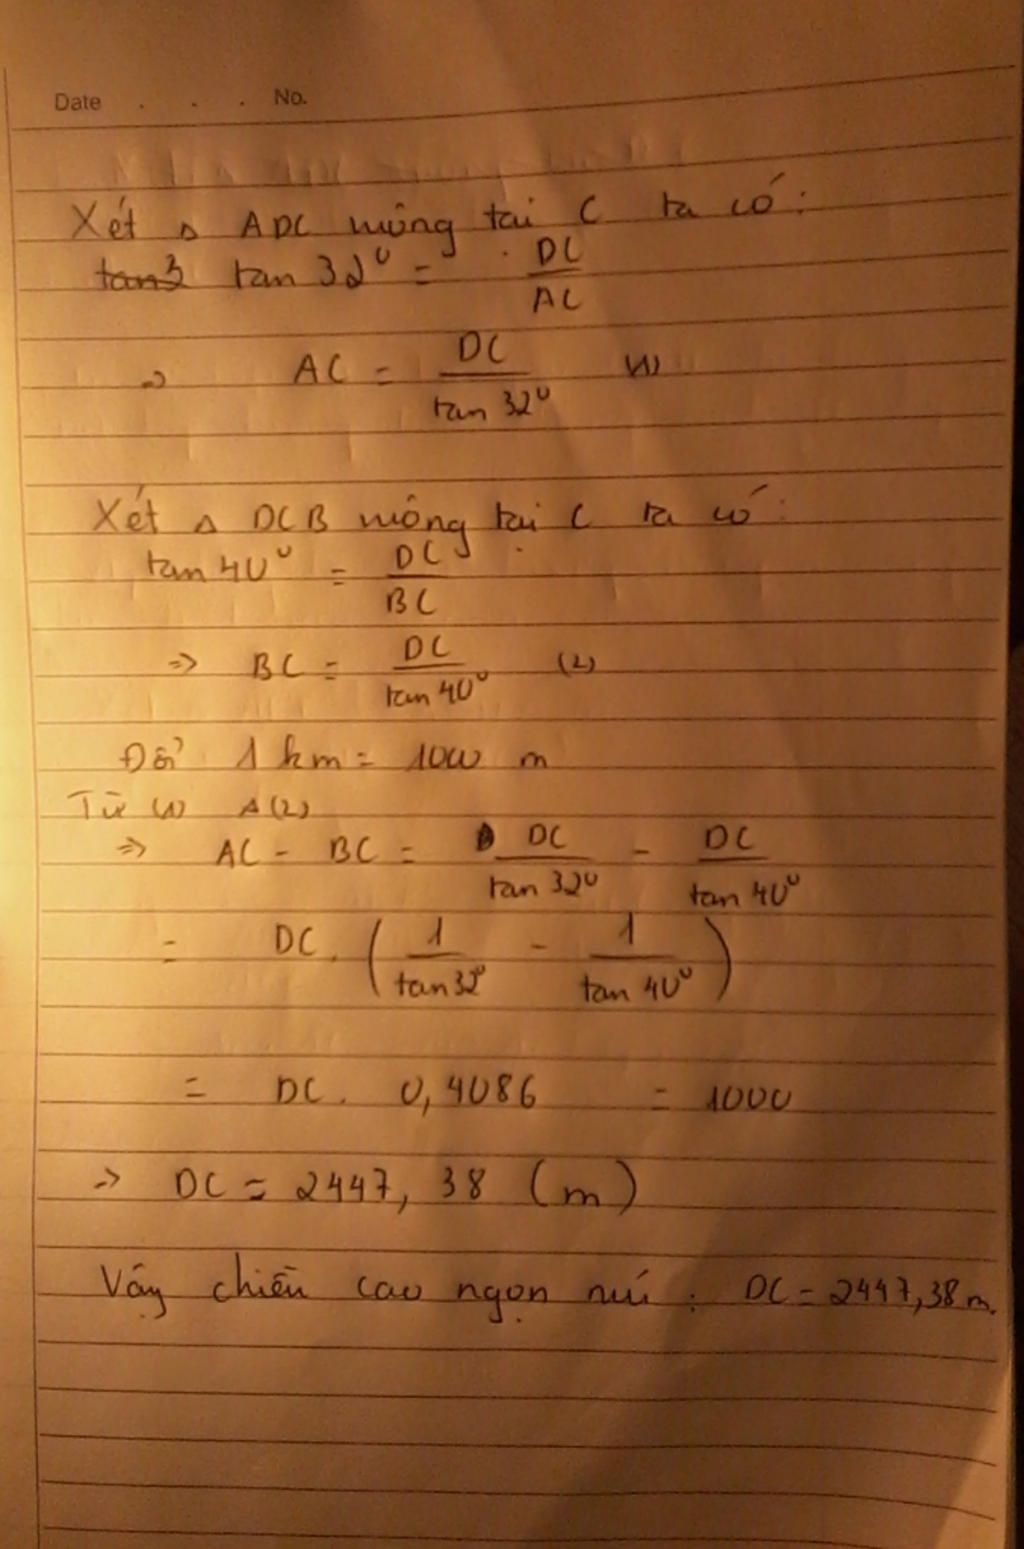 Date . . . No.
Xét Δ ADC vuông tại C ta có:
tan3 tan 32° = DC/AC
=> AC = DC/tan 32° (1)
Xét Δ DCB vuông tại C ta có:
tan 40° = DC/BC
=> BC = DC/tan 40° (2)
Đổi 1 km = 1000 m
Từ (1) & (2)
=> AC - BC = DC/tan 32° - DC/tan 40°
= DC . (1/tan 32° - 1/tan 40°)
= DC . 0,4086 = 1000
=> DC = 2447,38 (m)
Vậy chiều cao ngọn núi : DC = 2447,38 m.